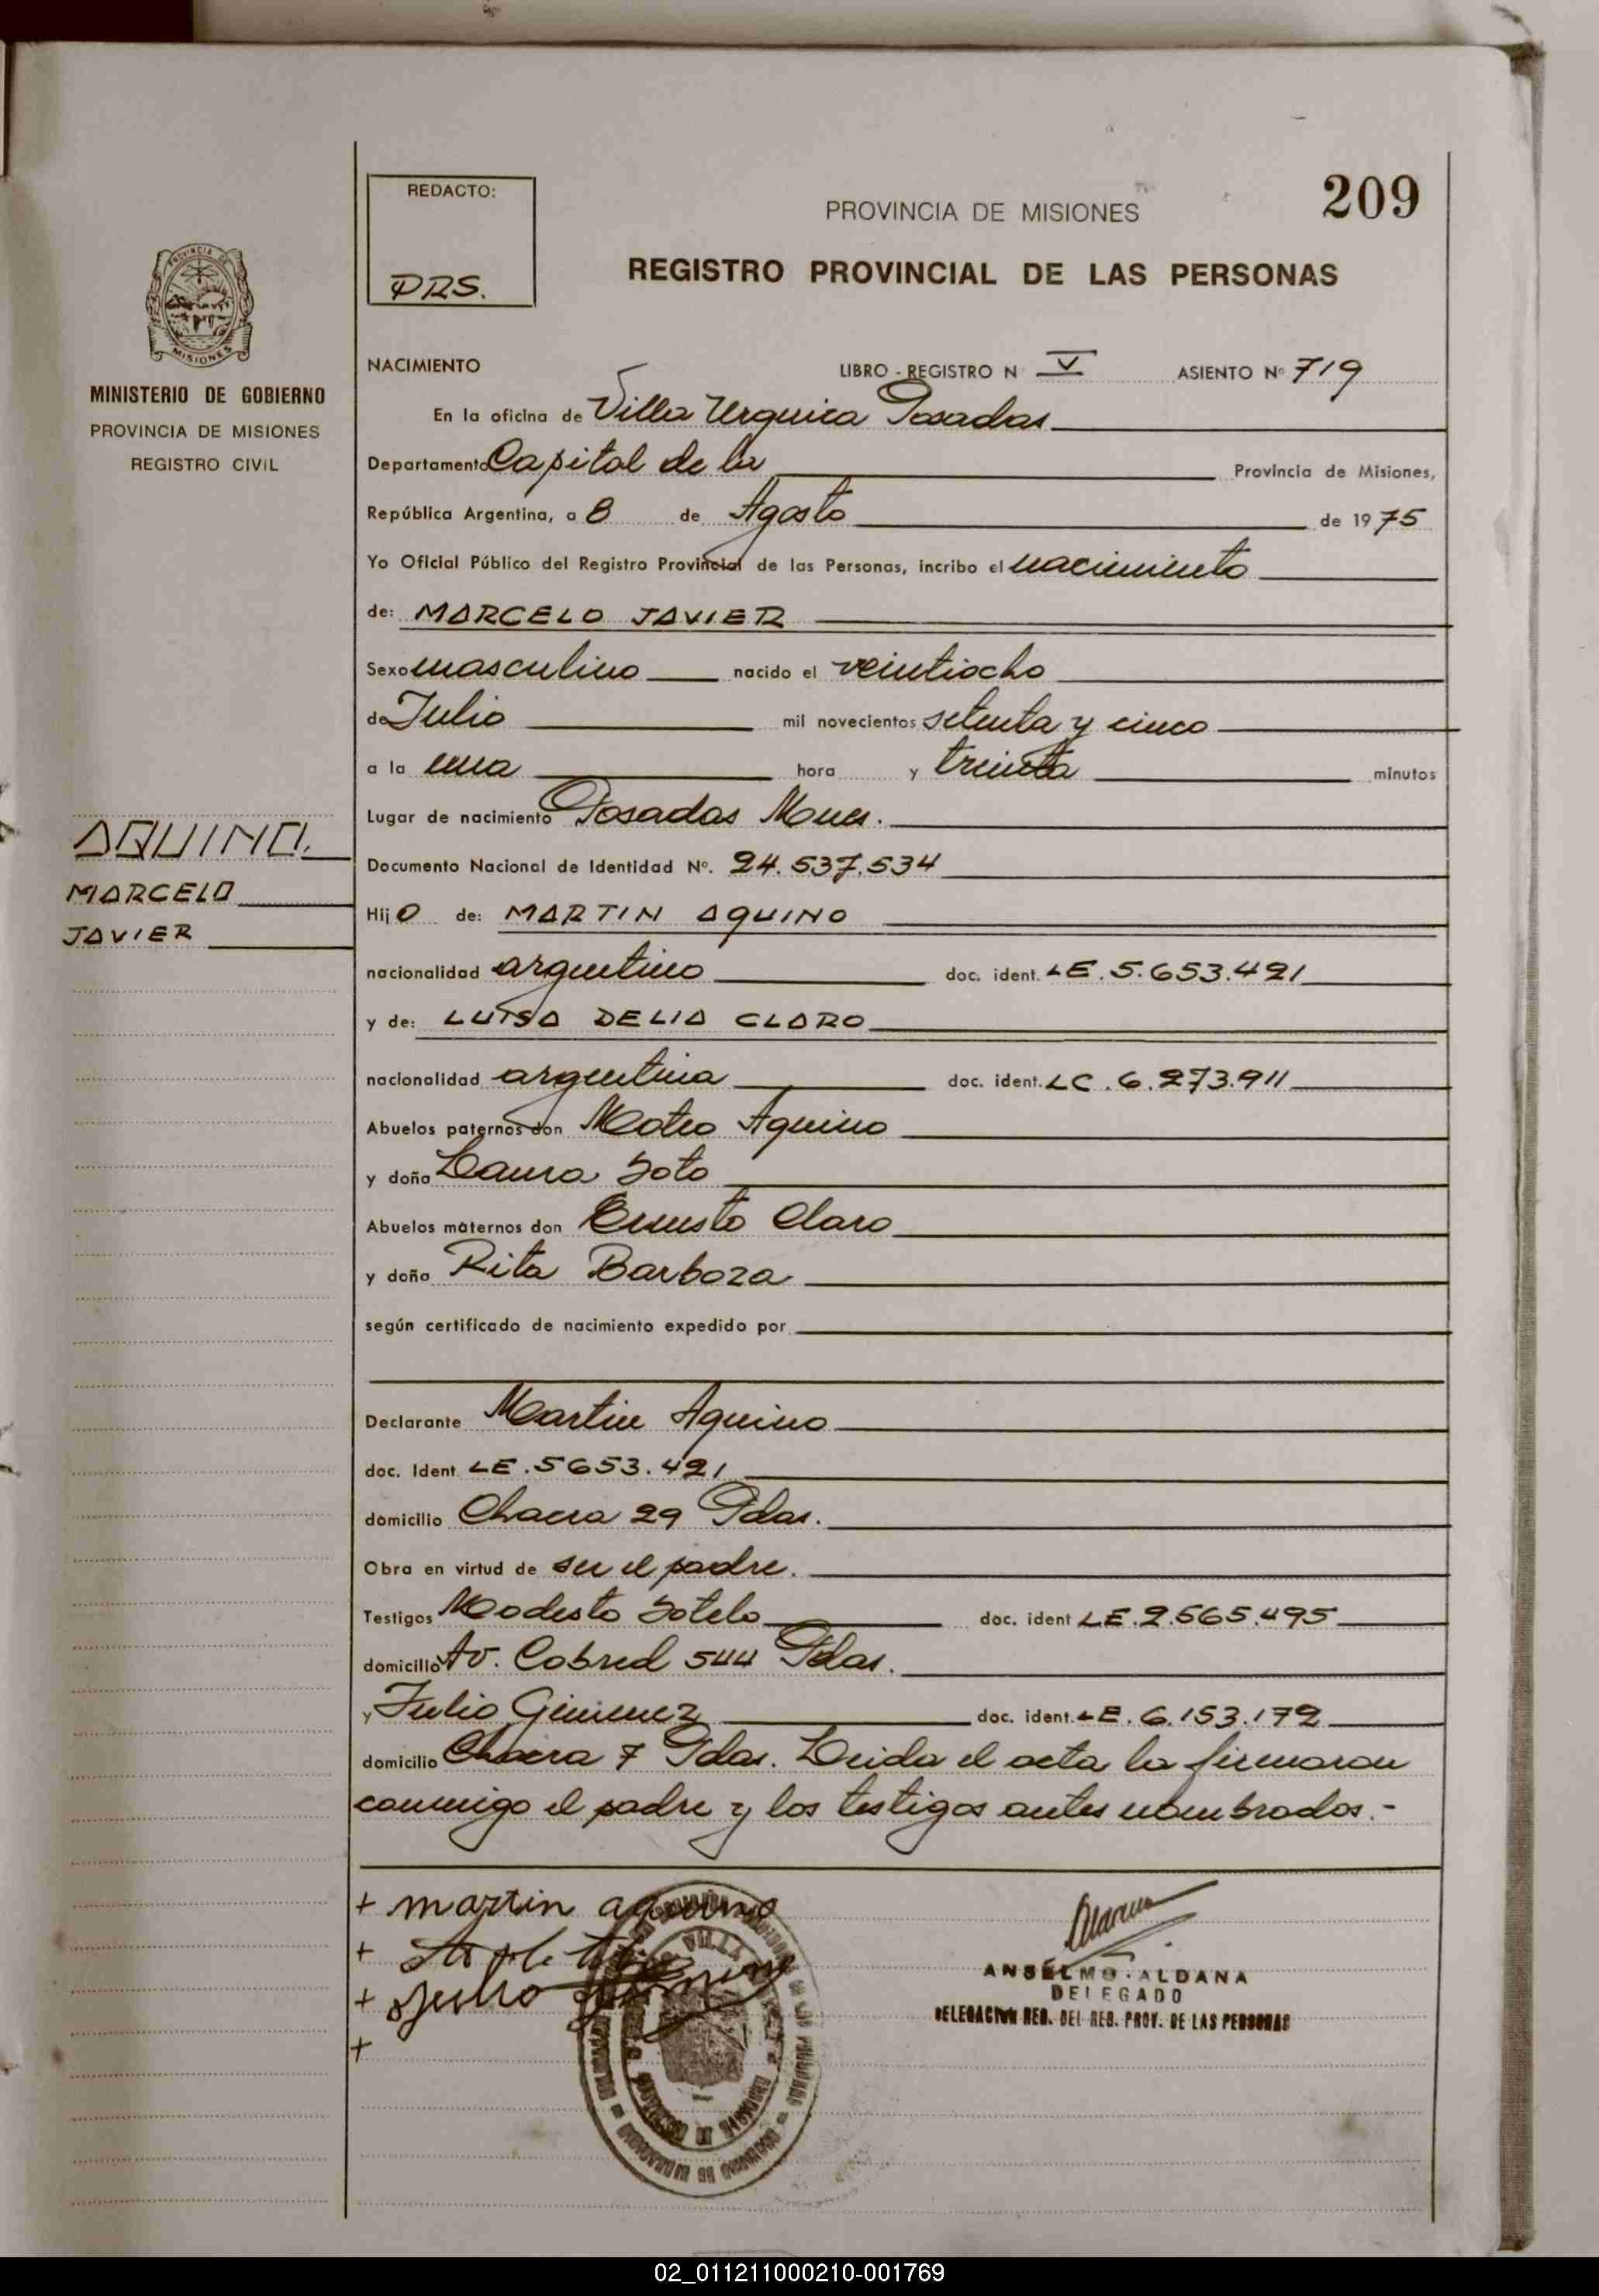 209
REDACTO:
PRS.
PROVINCIA DE MISIONES
REGISTRO PROVINCIAL DE LAS PERSONAS
PROVINCIA DE
MISIONES
MINISTERIO DE GOBIERNO
PROVINCIA DE MISIONES
REGISTRO CIVIL
NACIMIENTO LIBRO - REGISTRO N V ASIENTO Nº 719
En la oficina de Villa Urquiza Posadas
Departamento Capital de la Provincia de Misiones,
República Argentina, a 8 de Agosto de 1975
Yo Oficial Público del Registro Provincial de las Personas, incribo el nacimiento
de: MARCELO JAVIER
Sexo masculino nacido el veintiocho
de Julio mil novecientos setenta y cinco
a la una hora y treinta minutos
Lugar de nacimiento Posadas Mnes.
AQUINO.
MARCELO
JAVIER
Documento Nacional de Identidad Nº. 24.537.534
Hijo de: MARTIN AQUINO
nacionalidad argentino doc. ident. LE. 5.653.421
y de: LUISA DELIA CLARO
nacionalidad argentina doc. ident. LC. 6.273.911
Abuelos paternos don Mateo Aquino
y doña Laura Soto
Abuelos maternos don Ernesto Claro
y doña Rita Barboza
según certificado de nacimiento expedido por
Declarante Martin Aquino
doc. Ident. LE. 5653.421
domicilio Chacra 29 Pdas.
Obra en virtud de ser el padre.
Testigos Modesto Sotelo doc. ident LE. 2.565.495
domicilio Av. Cabred 544 Pdas.
y Julio Gimenez doc. ident. LE. 6.153.172
domicilio Chacra 7 Pdas. Leida el acta la firmaron
conmigo el padre y los testigos antes nombrados.-
+ martin aquino
+
+ Julio
+
ANSELMO ALDANA
DELEGADO
DELEGACION REG. DEL REG. PROV. DE LAS PERSONAS
02_011211000210-001769